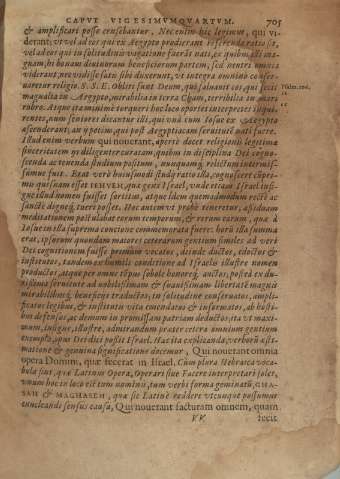 CAPVT VIGESIMVMQVARTVM. 705
& amplificari posse censebantur. Nec enim hic legimus, qui vi-
derant; vt vel ad eos qui ex Aegypto prodierant referenda ratio sit,
vel ad eos qui in solitudinis vagatione fuerāt nati, ex quibus illi nus-
quam, hi bonam diuinorum beneficiorum partem, sed nentri omnia
viderant, ne vidisse satis sibi duxerunt, vt integra omnino conser-
uaretur religio. S. S. E. Obliti sunt Deum, qui saluauit eos, qui fecit
magnalia in Aegypto, mirabilia in terra Cham, terribilia in mari
rubro. Atque ita minime torquet huc loca oportet interpretes disqui-
rentes, num seniores dicantur illi, qui vnà cum Iosue ex Aegypto
ascenderant, an ij etiam, qui post Aegyptiacam seruitutē nati fuere.
Illud enim verbum qui nouerant, aperte docet religionis legitimæ
sinceritatem
scenda ac tenenda studium positum, nunquam
sumue fuit. Erat verò huiusmodi studij ratio illa, cognoscere cùpri-
mis quisnam esset IEHVEH, qua gens Israel, vnde etiam Israel insi-
gne illud nomen fuisset sortitus, atque idem quemadmodum rectè ac
sanctè dignéq́; tueri posset. Hoc autem vt probè teneretur, assiduam
meditationem postulabat rerum temporum, & rerum earum, quæ à
Iosue in illa suprema concione commemorata fuere: horū illa summa
erat, ipsorum quondam maiores ceterarum gentium similes ad veri
Dei cognitionem fuisse primùm vocatos, deinde ductos, edoctos &
institutos, tandem ex humili conditione ad Israelis illustre nomen
productos, atque per omne tēpus sobole honoreq́; auctos, postea ex du-
rissima seruitute ad nobilissimam & suauissimam libertatē magnis
mirabilibusq́; beneficijs traductos, in solitudine conseruatos, ampli-
ficatos legibus, & instituto vitæ emendatos & informatos, ab hosti-
bus defensos, ac demum in promissam patriam deductos; ita vt maxi-
mum, insigne, illustre, admirandum præter cetera omnium gentium
exempla, opus Dei dici possit Israel. Hac ita explicanda, verborū æsti-
matione & genuina significatione docemur, Qui nouerant omnia
opera Domini, quæ fecerat in Israel. Cùm plura Hebraica voca-
bula sint, quæ Latinis Opera, Operari siue Facere interpretari solet,
vnum hoc in loco est tum nominis, tum verbi forma geminatū, GHA-
SAH & MAGHASEH, quæ sic Latinè reddere vtcunque possumus
enucleandi sensus causa, Qui nouerant facturam omnem, quam
VV. fecit